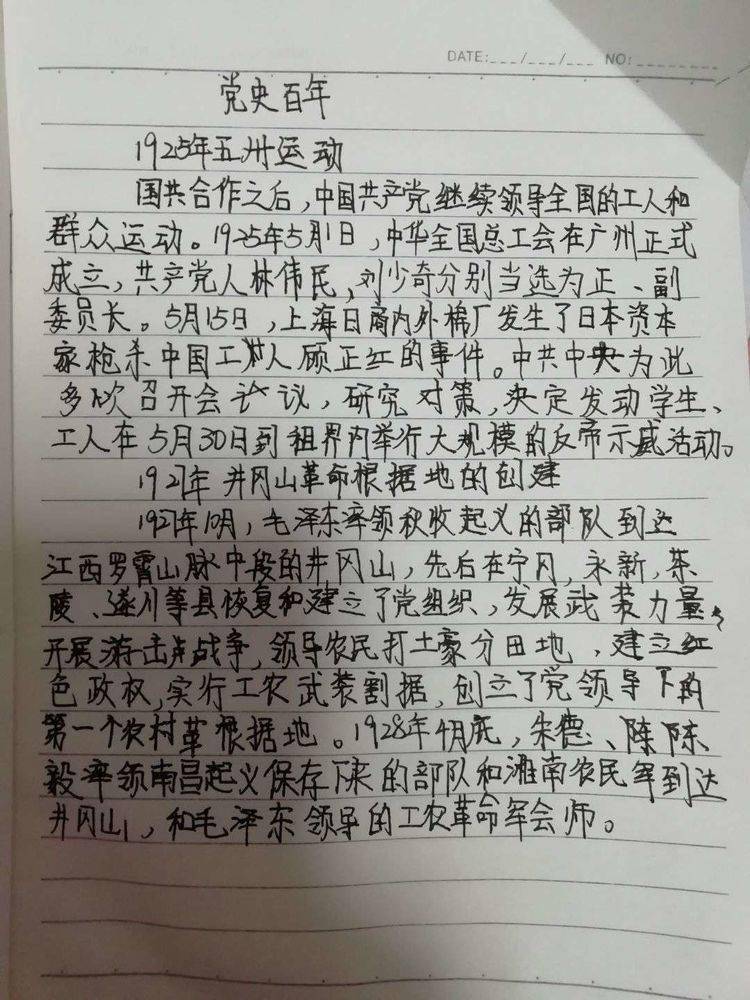 DATE:___/___/___ NO:________
党史百年
1925年五卅运动
国共合作之后，中国共产党继续领导全国的工人和
群众运动。1925年5月1日，中华全国总工会在广州正式
成立，共产党人林伟民，刘少奇分别当选为正、副
委员长。5月15日，上海日商内外棉厂发生了日本资本
家枪杀中国工人顾正红的事件。中共中央为此
多次召开会议，研究对策，决定发动学生、
工人在5月30日到租界内举行大规模的反帝示威活动。
1927年 井冈山革命根据地的创建
1927年10月，毛泽东率领秋收起义的部队到达
江西罗霄山脉中段的井冈山，先后在宁冈，永新，茶
陵、遂川等县恢复和建立了党组织，发展武装力量，
开展游击战争，领导农民打土豪分田地，建立红
色政权，实行工农武装割据，创立了党领导下的
第一个农村革根据地。1928年4月底，朱德、陈陈
毅率领南昌起义保存下来的部队和湘南农民军到达
井冈山，和毛泽东领导的工农革命军会师。